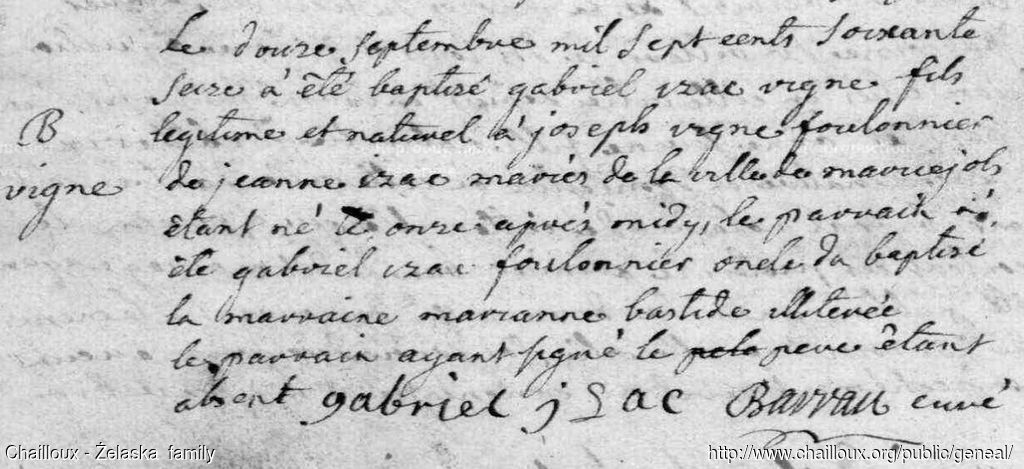 Le douze septembre mil sept cents soixante
seize à êté baptisé gabriel izac vigne fils
B
legitime et naturel à joseph vigne foulonnier
vigne
de jeanne izac mariés de la ville de maruejols
êtant né le onze aprés midy, le parrain à
êté gabriel izac foulonnier oncle du baptisé
la marraine marianne bastide illiterée
le parrain ayant signé le pere êtant
absent gabriel izac Barrau curé
Chailloux - Żelaska family
http://www.chailloux.org/public/geneal/